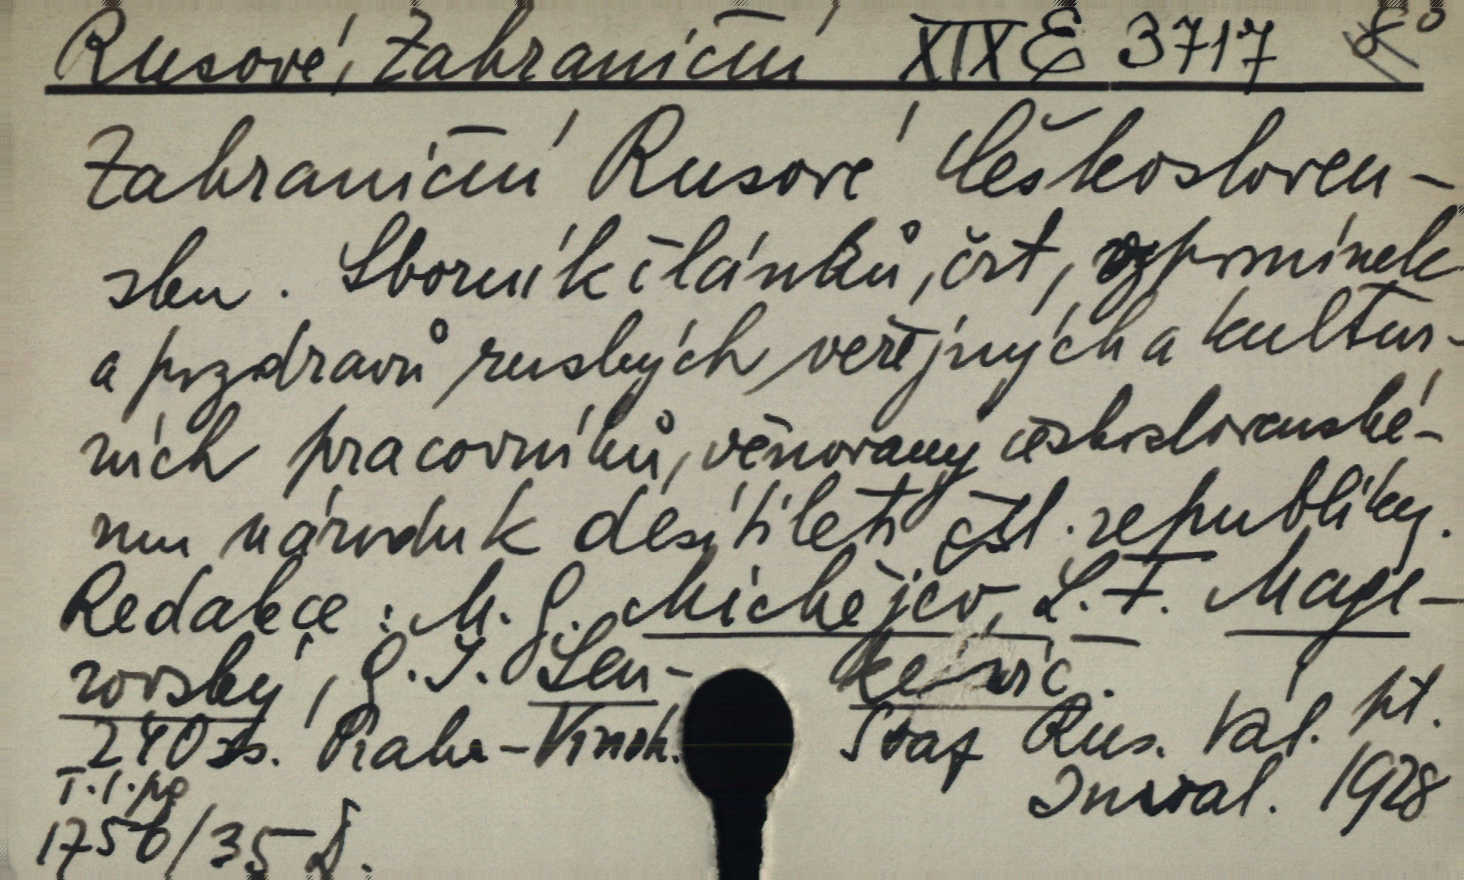 Rusové, Zahraniční XIX E 3717 8°
Zahraniční Rusové Českosloven-
sku. Sborník článků, črt, vzpomínek
a pozdravů ruských veřejných a kultur-
ních pracovníků, věnovaný československé-
mu národu k desítiletí čsl. republiky.
Redakce: M. G. Michějev, L. F. Magе-
rovský, G. I. Šen- kevič.
240 s. Praha-Vinoh. Svaz Rus. Vál.
Inval. 1928
T.I.pg
1756/35 D.